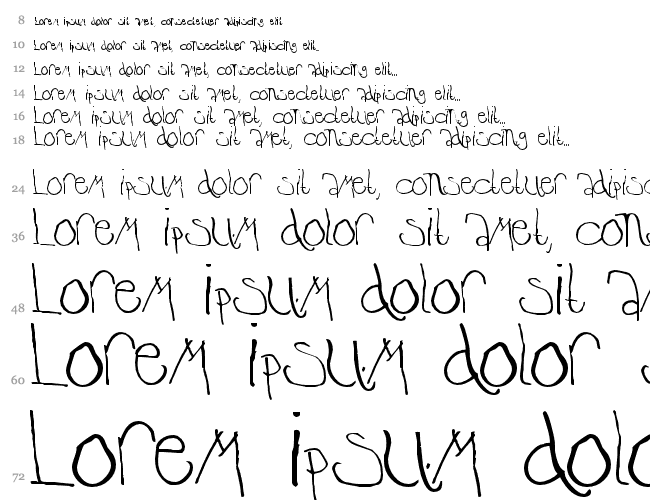 8 Lorem ipsum dolor sit amet, consectetuer adipiscing elit
10 Lorem ipsum dolor sit amet, consectetuer adipiscing elit..
12 Lorem ipsum dolor sit amet, consectetuer adipiscing elit...
14 Lorem ipsum dolor sit amet, consectetuer adipiscing elit...
16 Lorem ipsum dolor sit amet, consectetuer adipiscing elit...
18 Lorem ipsum dolor sit amet, consectetuer adipiscing elit...
24 Lorem ipsum dolor sit amet, consectetuer adipisc
36 Lorem ipsum dolor sit amet, con
48 Lorem ipsum dolor sit a
60 Lorem ipsum dolor s
72 Lorem ipsum dolo